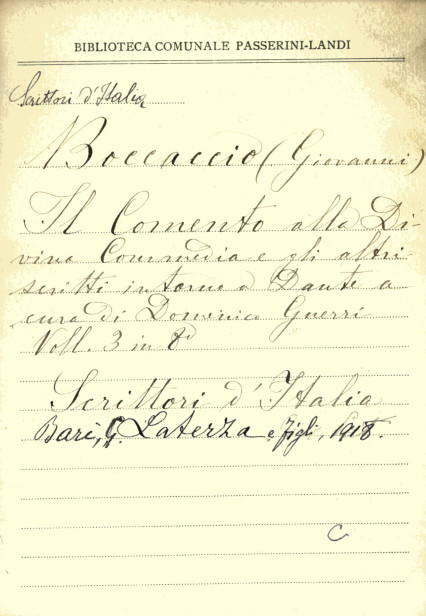 BIBLIOTECA COMUNALE PASSERINI-LANDI
Scrittori d'Italia
Boccaccio (Giovanni)
Il Comento alla Di-
vina Commedia e gli altri
scritti intorno a Dante a
cura di Domenico Guerri
Voll. 3 in 8º
Scrittori d'Italia
Bari, G. Laterza e figli, 1918.
C